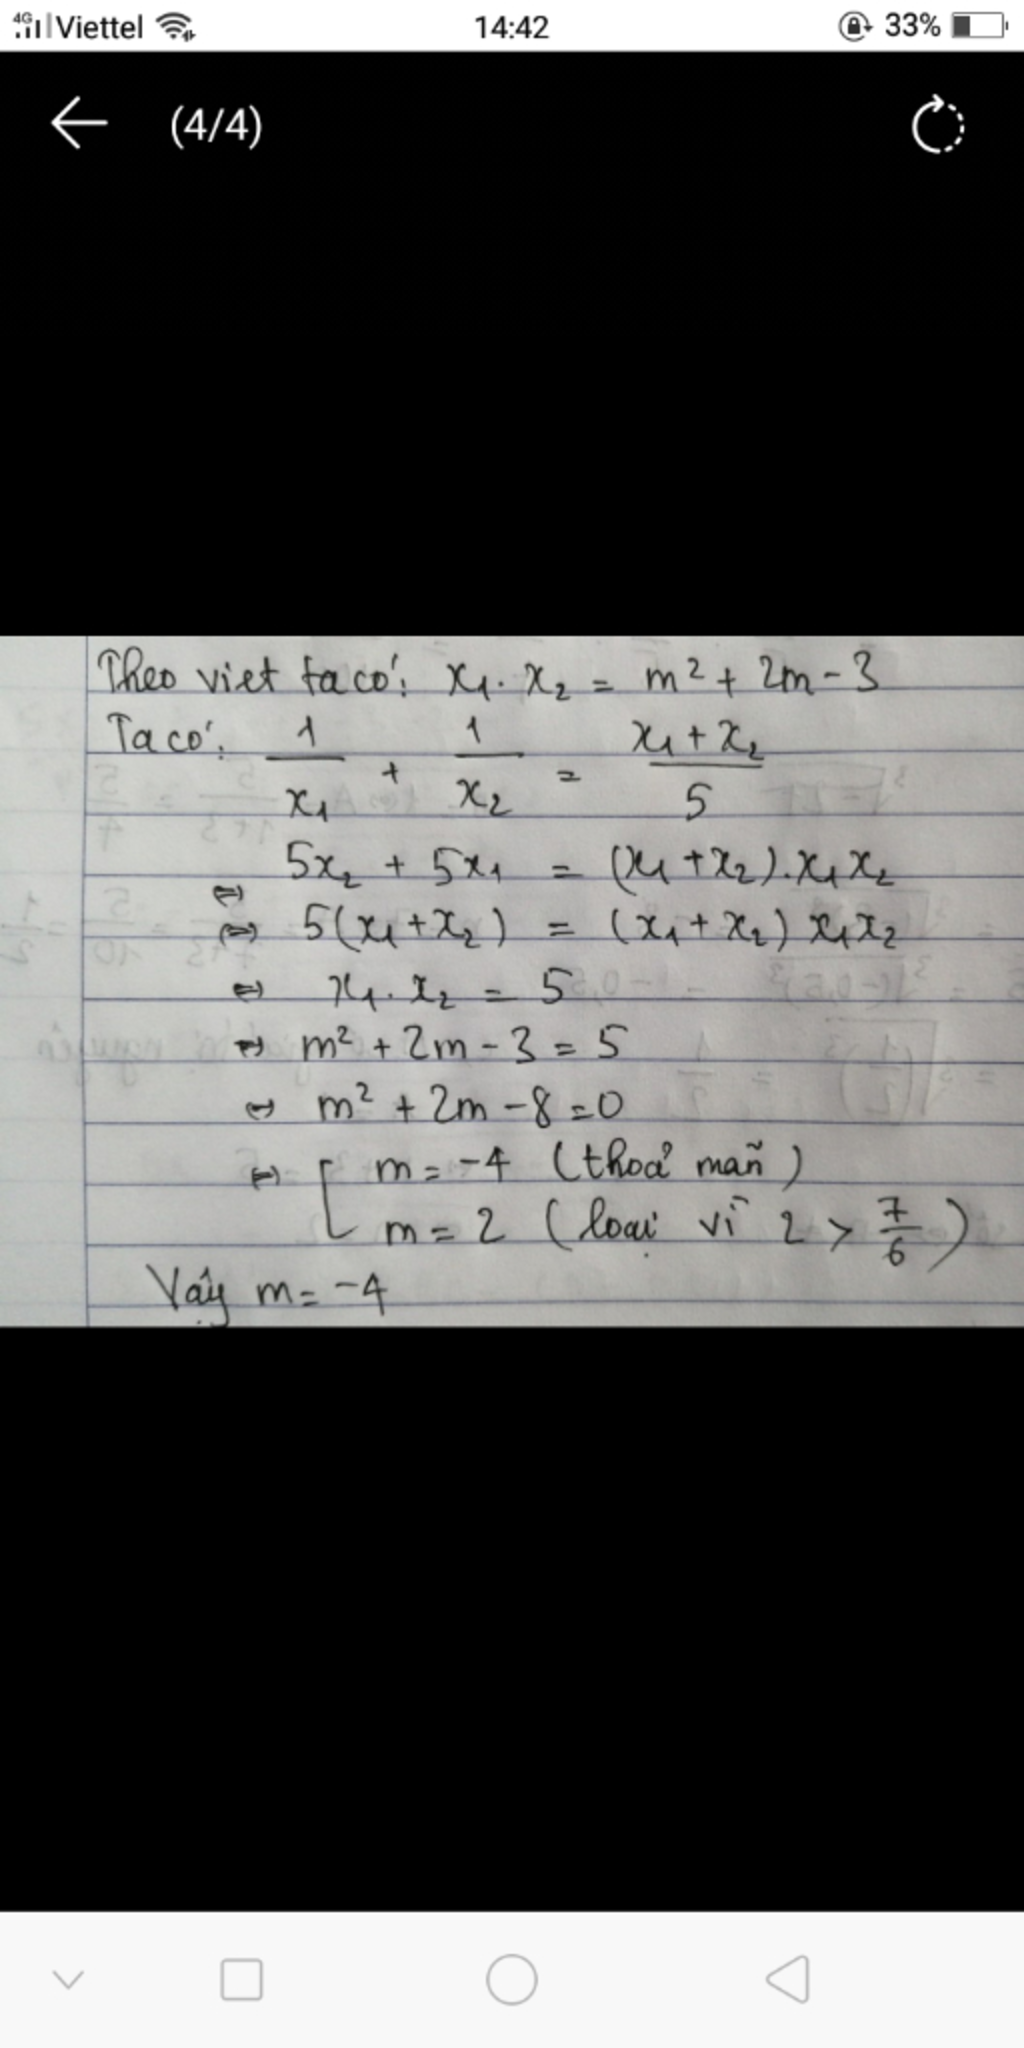 4G Viettel 14:42 33%
(4/4)
Theo viet ta có: x₁. x₂ = m² + 2m - 3
Ta có: 1/x₁ + 1/x₂ = (x₁ + x₂)/5
⇔ 5x₂ + 5x₁ = (x₁ + x₂).x₁x₂
⇔ 5(x₁ + x₂) = (x₁ + x₂) x₁x₂
⇔ x₁. x₂ = 5
⇔ m² + 2m - 3 = 5
⇔ m² + 2m - 8 = 0
⇔ [ m = -4 (thoả mãn)
m = 2 (loại vì 2 > 7/6)
Vậy m = -4